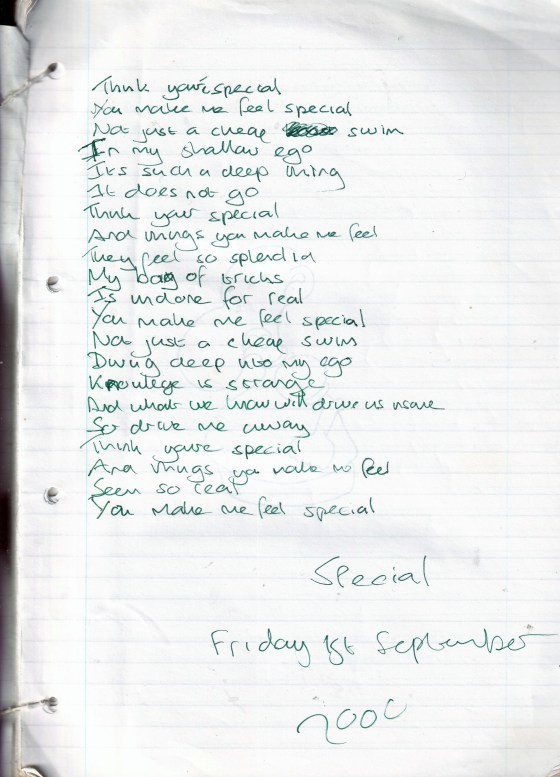 Think you're special
You make me feel special
Not just a cheap swim
In my shallow ego
Its such a deep thing
It does not go
Think your special
And things you make me feel
They feel so splendid
My bag of tricks
Is undone for real
You make me feel special
Not just a cheap swim
Diving deep into my ego
Knowlege is strange
And what we know will drive us insane
So drive me away
Think you're special
And things you make me feel
Seem so real
You make me feel special
Special
Friday 1st September
2000